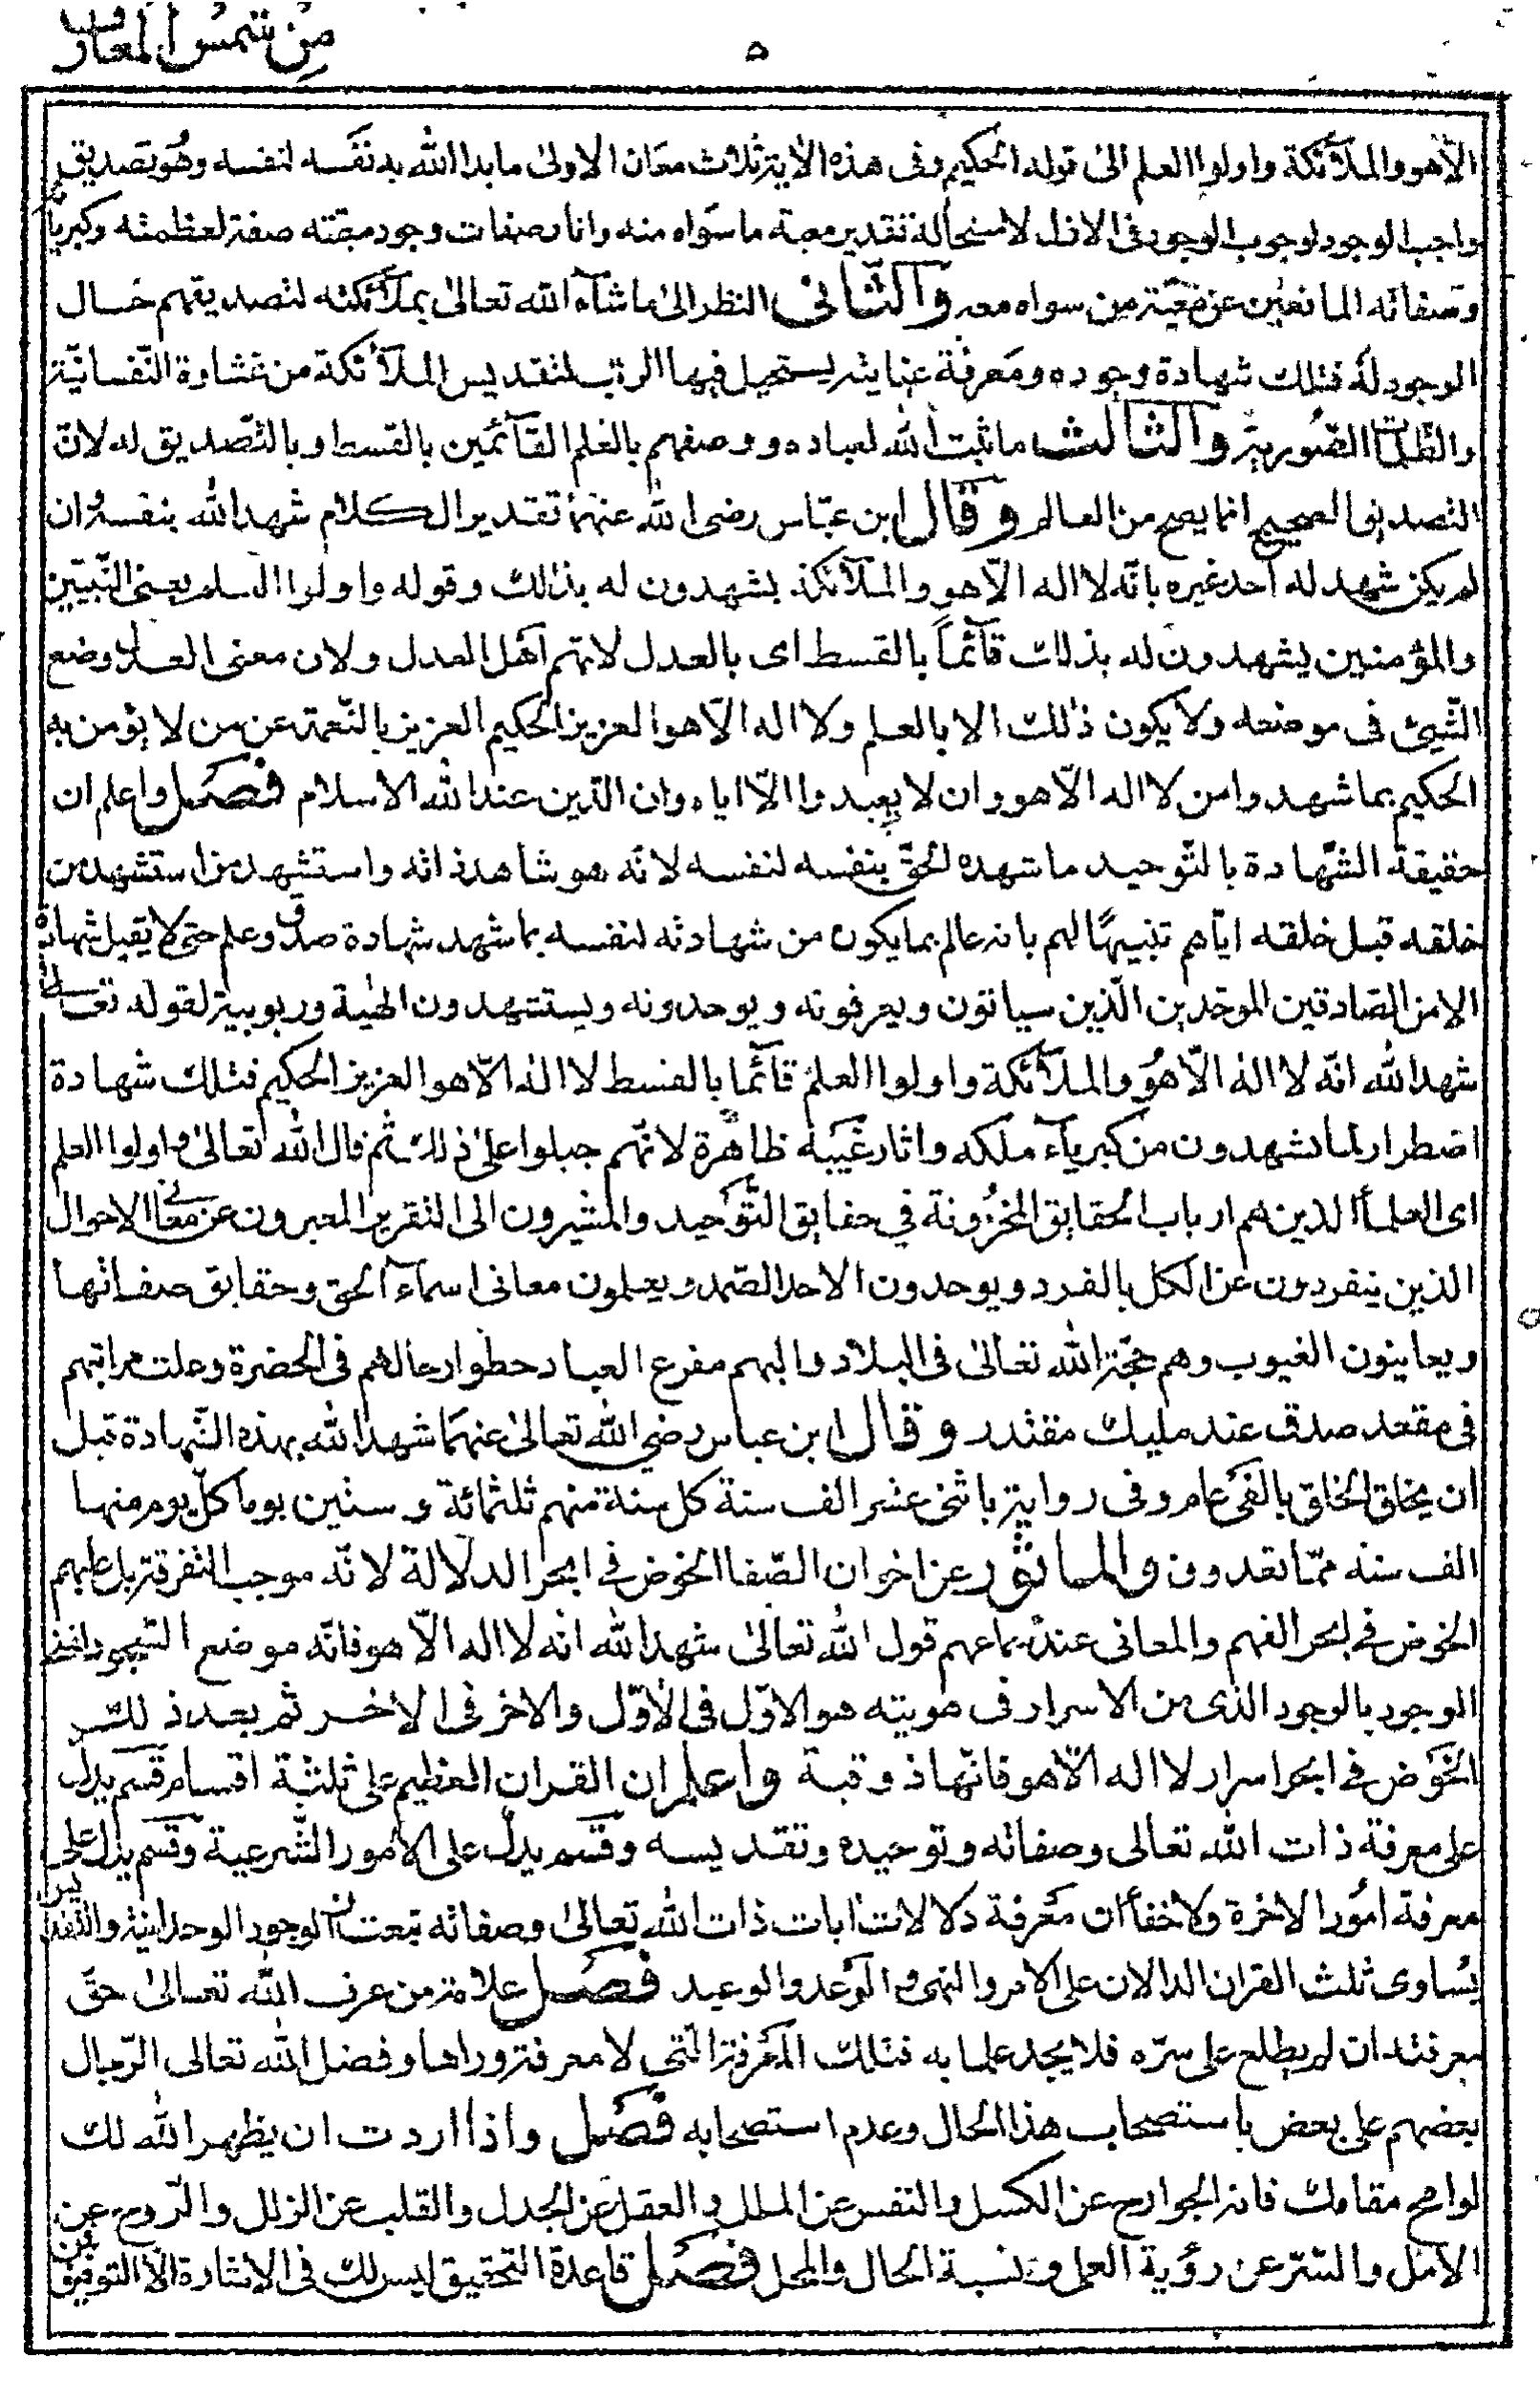 من شمس المعارف
٥
الا هو والملآئكة واولوا العلم الى قوله الحكيم وفى هذه الاية ثلاث معان الاولى ما بدا الله به نفسه لنفسه وهو تصديق
واجب الوجود لوجوب الوجود فى الازل لاستحالة تقدير معية ما سواه منه واثار صفات وجود مقته صفة لعظمته وكبريا
وصفاته المانعين عن معية من سواه معه والثانى النظر الى ما شآء الله تعالى بملآئكته لتصديقهم حال
الوجود له فتلك شهادة وجوده ومعرفة عناية يستحيل فيها الريب لتقديس الملآئكة من غشاوة النفسانية
والظلمات الصورية والثالث ما ثبت الله لعباده ووصفهم بالعلم القآئمين بالقسط وبالتصديق له لان
التصديق الصحيح انما يصح من العالم وقال ابن عباس رضى الله عنهما تقدير الكلام شهد الله بنفسه ان
لم يكن شهد له احد غيره بانه لا اله الا هو والملآئكة يشهدون له بذلك وقوله واولوا العلم يعنى النبيين
والمؤمنين يشهدون له بذلك قآئما بالقسط اى بالعدل لانهم اهل العدل ولان معنى العدل وضع
الشيئ فى موضعه ولا يكون ذلك الا بالعلم ولا اله الا هو العزيز الحكيم العزيز بالنعمة عن من لا يؤمن به
الحكيم بما شهد وامن لا اله الا هو وان لا يعبدوا الا اياه وان الدين عند الله الاسلام فصل واعلم ان
حقيقة الشهادة بالتوحيد ما شهده الحق بنفسه لنفسه لانه هو شاهد ذاته واستشهد من استشهد من
خلقه قبل خلقه اياهم تنبيها لهم بانه عالم بما يكون من شهادته لنفسه بما شهد شهادة صدق وعلم حتى لا يقبل شهادة
الا من الصادقين الموحدين الذين سياتون ويعرفونه ويوحدونه ويستشهدون الهية وربوبية لقوله تعالى
شهد الله انه لا اله الا هو والملآئكة واولوا العلم قآئما بالقسط لا اله الا هو العزيز الحكيم فتلك شهادة
اضطرار لما تشهدون من كبريآء ملكه واثار غيبة ظاهرة لانهم جبلوا على ذلك ثم قال الله تعالى واولوا العلم
اى العلمآ الذين هم ارباب الحقايق المخزونة في حقايق التوحيد والمشيرون الى التقرير المعبرون عن معانى الاحوال
الذين ينفردون عن الكل بالفرد ويوحدون الاحد الصمد ويعلمون معانى اسمآء الحق وحقايق صفاتها
ويعاينون الغيوب وهم حجة الله تعالى فى البلاد واليهم مفزع العباد حطوا رحالهم فى الحضرة وعلت مراتبهم
فى مقعد صدق عند مليك مقتدر وقال ابن عباس رضي الله تعالى عنهما شهد الله بهذه الشهادة قبل
ان يخلق الخلق بالفى عام وفى رواية باثنى عشر الف سنة كل سنة منهم ثلثمائة وستين يوما كل يوم منها
الف سنة مما تعدون والماثور عن اخوان الصفا الخوض في ابحر الدلالة لانه موجب التفرقة بل عليهم
الخوض في ابحر الفهم والمعانى عند سماعهم قول الله تعالى شهد الله انه لا اله الا هو فانه موضع السجود
الوجود بالوجود الذى من الاسرار فى هويته هو الاول فى الاول والاخر فى الاخر ثم بعد ذلك
الخوض في ابحر اسرار لا اله الا هو فانها ذوقية واعلم ان القران العظيم على ثلثة اقسام قسم يدل
على معرفة ذات الله تعالى وصفاته وتوحيده وتقديسه وقسم يدل على الامور الشرعية وقسم يدل على
معرفة امور الاخرة ولا خفآ ان معرفة دلالات ايات ذات الله تعالى وصفاته الوجود الوحدانية والتقدير
يساوى ثلث القران الدالان على الامر والنهى والوعد والوعيد فصل علامة من عرف الله تعالى حق
معرفته ان لم يطلع على سره فلا يجد علما به فتلك المعرفة التى لا معرفة وراها وفضل الله تعالى الرجال
بعضهم على بعض باستصحاب هذا الحال وعدم استصحابه فصل واذا اردت ان يظهر الله لك
لوامح مقامك فانه الجوارح عن الكسل والنفس عن الملل والعقل عن الجدل والقلب عن الزلل والروح عن
الامل والسر عن رؤية العمل ونسبة الحال والمحل فصل قاعدة التحقيق ليس لك فى الاشارة الا التوفيق